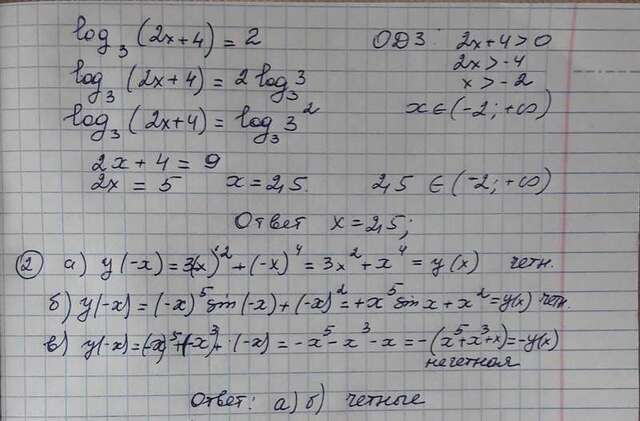 log₃ (2x+4) = 2 ОДЗ: 2x+4>0
2x>-4
log₃ (2x+4) = 2 log₃ 3 x > -2
log₃ (2x+4) = log₃ 3² x ∈ (-2; +∞)
2x+4 = 9
2x = 5 x = 2,5. 2,5 ∈ (-2; +∞)
Ответ x = 2,5;
② а) y(-x) = 3(-x)² + (-x)⁴ = 3x² + x⁴ = y(x) четн.
б) y(-x) = (-x)⁵ sin(-x) + (-x)² = +x⁵ sin x + x² = y(x) чет.
в) y(-x) = (-x)⁵ + (-x)³ + (-x) = -x⁵ - x³ - x = -(x⁵+x³+x) = y(x)
нечетная
Ответ: а) б) четные